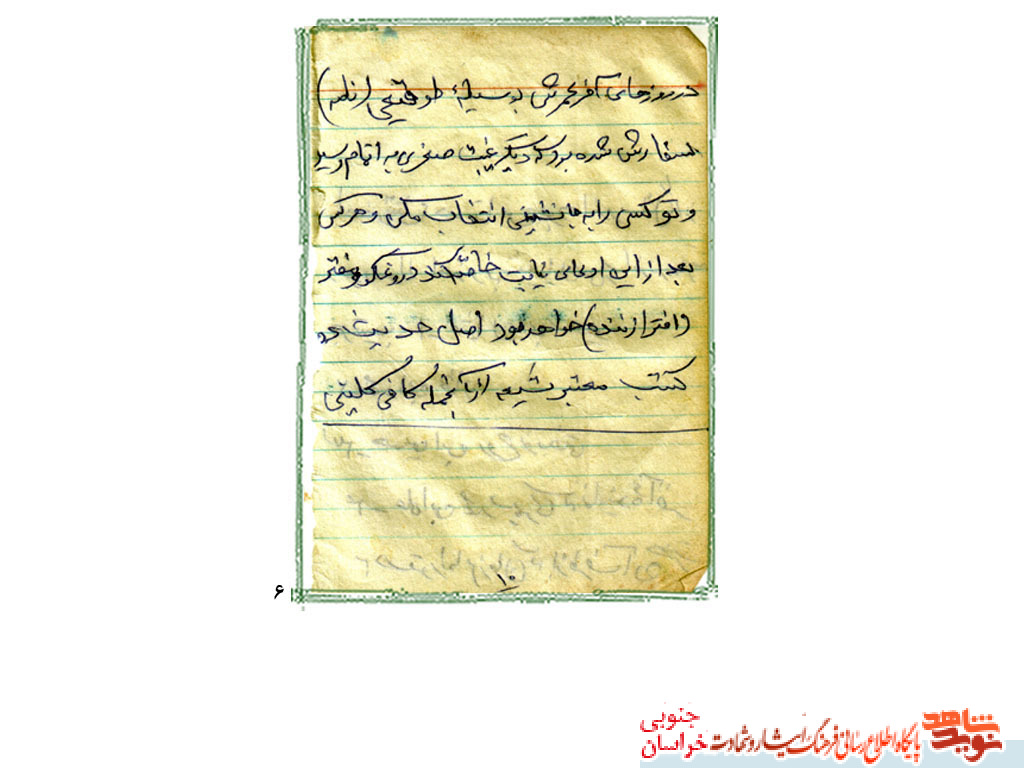 در روزهای آخر عمرش بوسیلهٔ طوقیعی (نامه)
سفارش شده بود که دیگر غیبت صغری به اتمام رسید
و تو کسی را به جانشینی انتخاب مکن و هر کس
بعد از این ادعای نیابت خاصّه کند دروغگو و مفتر
(افترا زننده) خواهد بود اصل حدیث در
کتب معتبر شیعه از آنجمله کافی کلینی
۱۰
۶
نوید شاهد
پایگاه اطلاع رسانی فرهنگ ایثار و شهادت
خراسان جنوبی